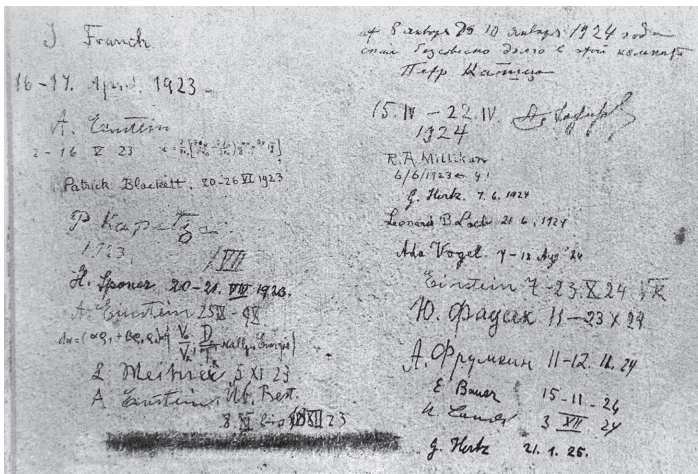 J. Franck
16-17. April. 1923.
A. Einstein
2-16 V 23
Patrick Blackett. 20-26 VI 1923
P Kapitza
1923. /VII
H. Sponer 20-21. VIII 1923.
A. Einstein
L. Meitner 5 XI 23
A Einstein Nb. Best.
8 XI bis XII 23
от 8 января до 10 января 1924 года
спал безсовестно долго в этой комнате
Петр Капица
15. IV – 22. IV.
1924
R. A. Millikan
6/6/1923
G. Hertz 7. 6. 1924
Leonard B Loeb 21 6. 1924
Ada Vogel. 7-12 Aug '24
Einstein 7-23. X 24
Ю. Фадеак 11-23 X 24
А. Фрумкин 11-12. 11. 24
E Bauer 15-11-24
3 XII 24
G. Hertz 21. 1. 25.